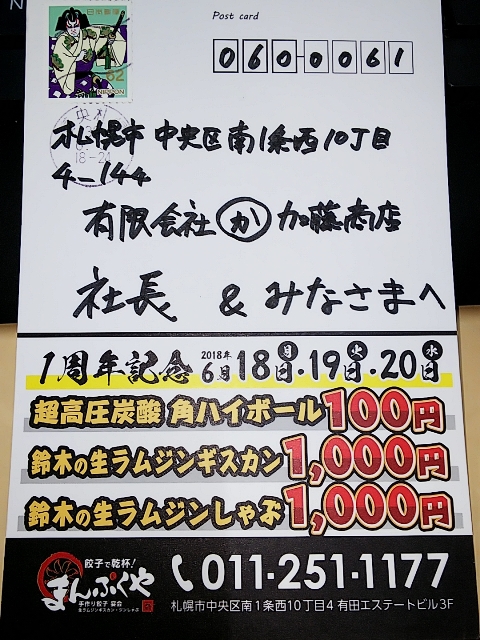 Post card
日本郵便
62
NIPPON
060-0061
18-24
札幌市中央区南1条西10丁目
4-144
有限会社 か 加藤商店
社長 & みなさまへ
1周年記念 2018年6月18日月・19日火・20日水
超高圧炭酸 角ハイボール100円
鈴木の生ラムジンギスカン1,000円
鈴木の生ラムジンしゃぶ1,000円
餃子で乾杯!
まんぷくや
手作り餃子 宴会
生ラムジンギスカン・ジンしゃぶ
011-251-1177
札幌市中央区南1条西10丁目4 有田エステートビル3F